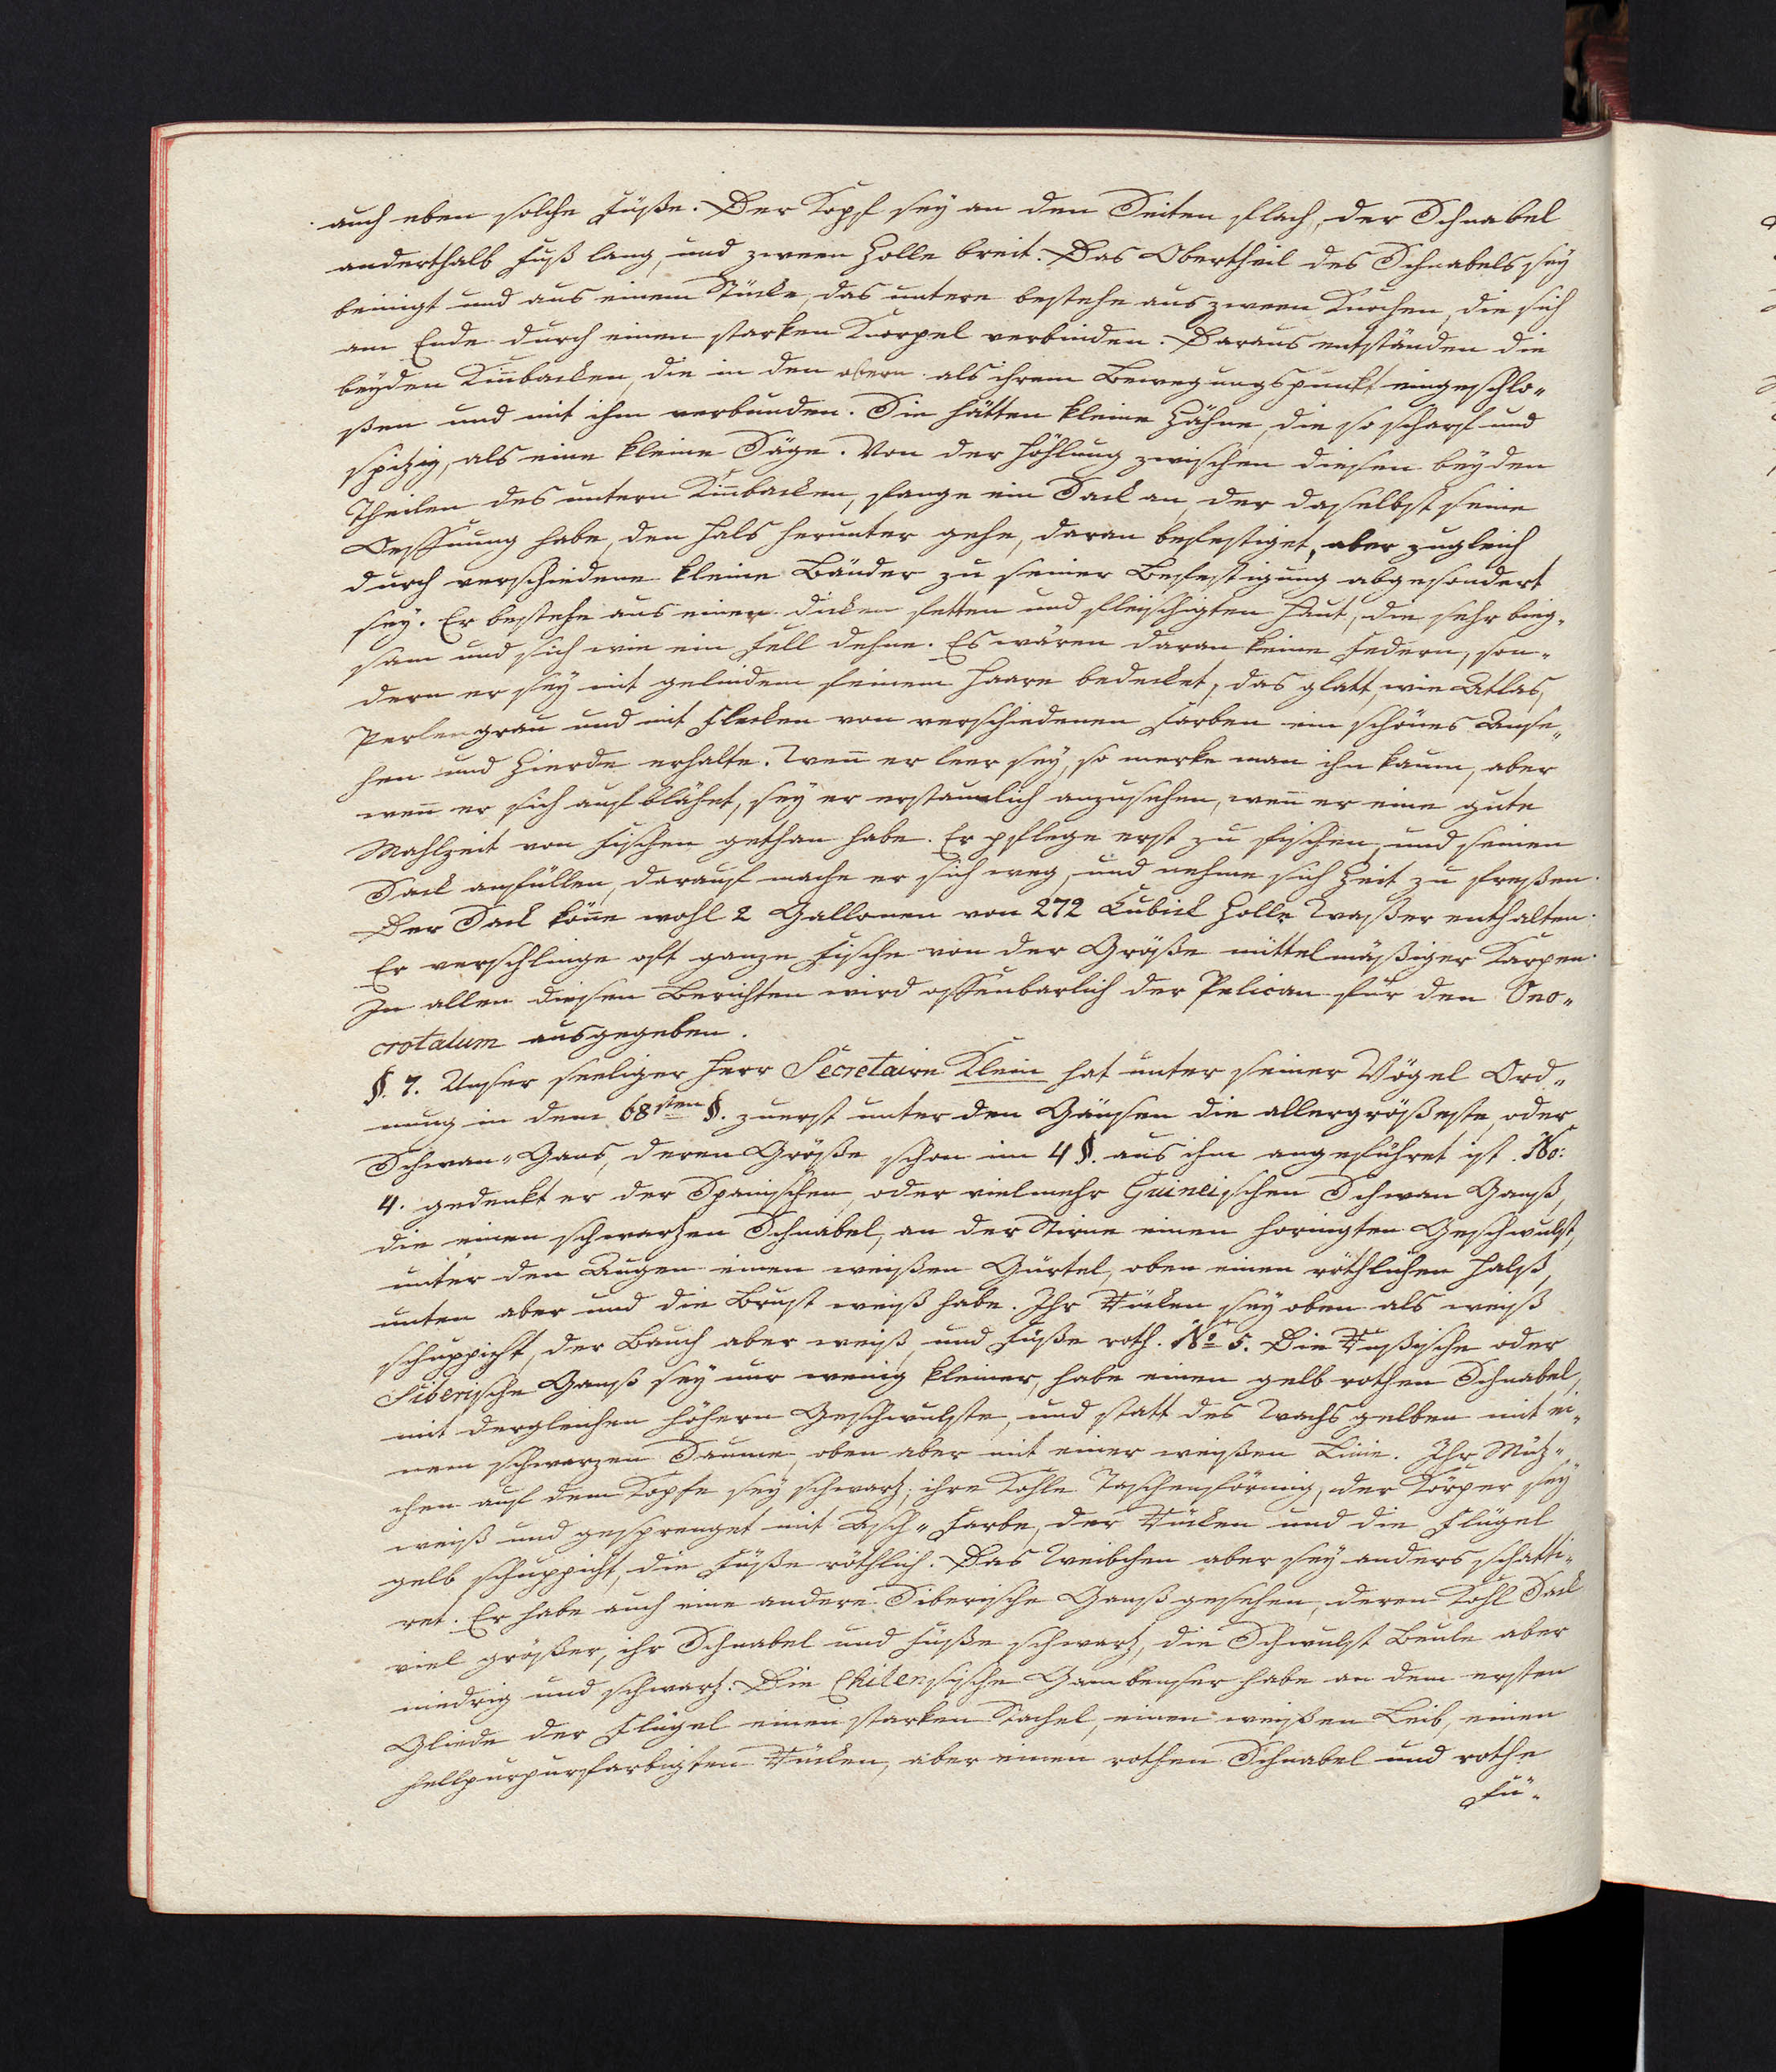 auch eben solche Füße. Der Kopf sey an den Seiten flach, der Schnabel
anderthalb Fuß lang, und zween Zolle breit. Das Obertheil des Schnabels sey
beinigt und aus einem Stücke, das untere bestehe aus zween Knochen, die sich
am Ende durch einen starken Knorpel verbinden. Daraus entständen die
beyden Kinbacken, die in den obern als ihrem Bewegungspunkt eingeschlo„
ßen und mit ihm verbunden. Sie hätten kleine Zähne, die so scharf und
spitzig, als eine kleine Säge. Von der Höhlung zwischen diesen beyden
Theilen des untern Kinbacken, fange ein Sack an, der daselbst seine
Oeffnung habe, den Hals herunter gehe, daran befestiget, aber zugleich
durch verschiedene kleine Bänder zu seiner Befestigung abgesondert
sey. Er bestehe aus einer dicken fetten und fleischigten Haut, die sehr bieg„
sam und sich wie ein Fell dehne. Es wären daran keine Federn, son„
dern er sey mit gelindem feinem Haare bedecket, das glatt, wie Atlas,
Perlengrau und mit Flecken von verschiedenen Farben ein schönes Anse„
hen und Zierde erhalte. Wen̄ er leer sey, so merke man ihn kaum, aber
wen̄ er sich aufblähet, sey er erstaunlich anzusehen, wen̄ er eine gute
Mahlzeit von Fischen gethan habe. Er pflege erst zu fischen, und seinen
Sack anfüllen, darauf mache er sich weg, und nehme sich Zeit zu freßen.
Der Sack kön̄e wohl 2 Gallonen von 272 Cubick Zolle Waßer enthalten.
Er verschlinge oft ganze Fische von der Größe mittelmäßiger Karpen.
In allen diesen Berichten wird offenbarlich der Pelican für den Ono„
crotalum ausgegeben.
§. 7. Unser seeliger Herr Secretaire Klein hat unter seiner Vögel Ord„
nung in dem 68sten §. zuerst unter den Gänsen die allergrößeste, oder
Schwan„Gans, deren Größe schon im 4 §. aus ihm angeführet ist. No:
4. gedenkt er der Spanischen, oder vielmehr Guineischen Schwan Ganß,
die einen schwartzen Schnabel, an der Stirne einen horingten Geschwulst,
unter den Augen einen weißen Gürtel, oben einen röthlichen Halß,
unten aber und die Brust weiß habe. Ihr Rücken sey oben als weiß
schuppicht, der Bauch aber weiß, und Füße roth. No 5. Die Rußische oder
Siberische Ganß sey nur wenig kleiner, habe einen gelb rothen Schnabel,
mit dergleichen höhern Geschwulste, und statt des Wachs gelben mit ei„
nem schwarzen Saume, oben aber mit einer weißen Linie. Ihr Mütz„
chen auf dem Kopfe sey schwartz, ihre Kehle Taschenförmig, der Körper sey
weiß und gesprenget mit Asch„Farbe, der Rücken und die Flügel
gelb schuppicht, die Füße röthlich. Das Weibchen aber sey anders schatti„
ret. Er habe auch eine andere Siberische Ganß gesehen, deren Kehl Sack
viel größer, ihr Schnabel und Füße schwartz, die Schwulst Beule aber
niedrig und schwartz. Die Chilensische Gambenser habe an dem ersten
Gliede der Flügel einen starken Stachel, einen weißen Leib, einen
hellpurpurfarbigten Rücken, aber einen rothen Schnabel und rothe
Fü„